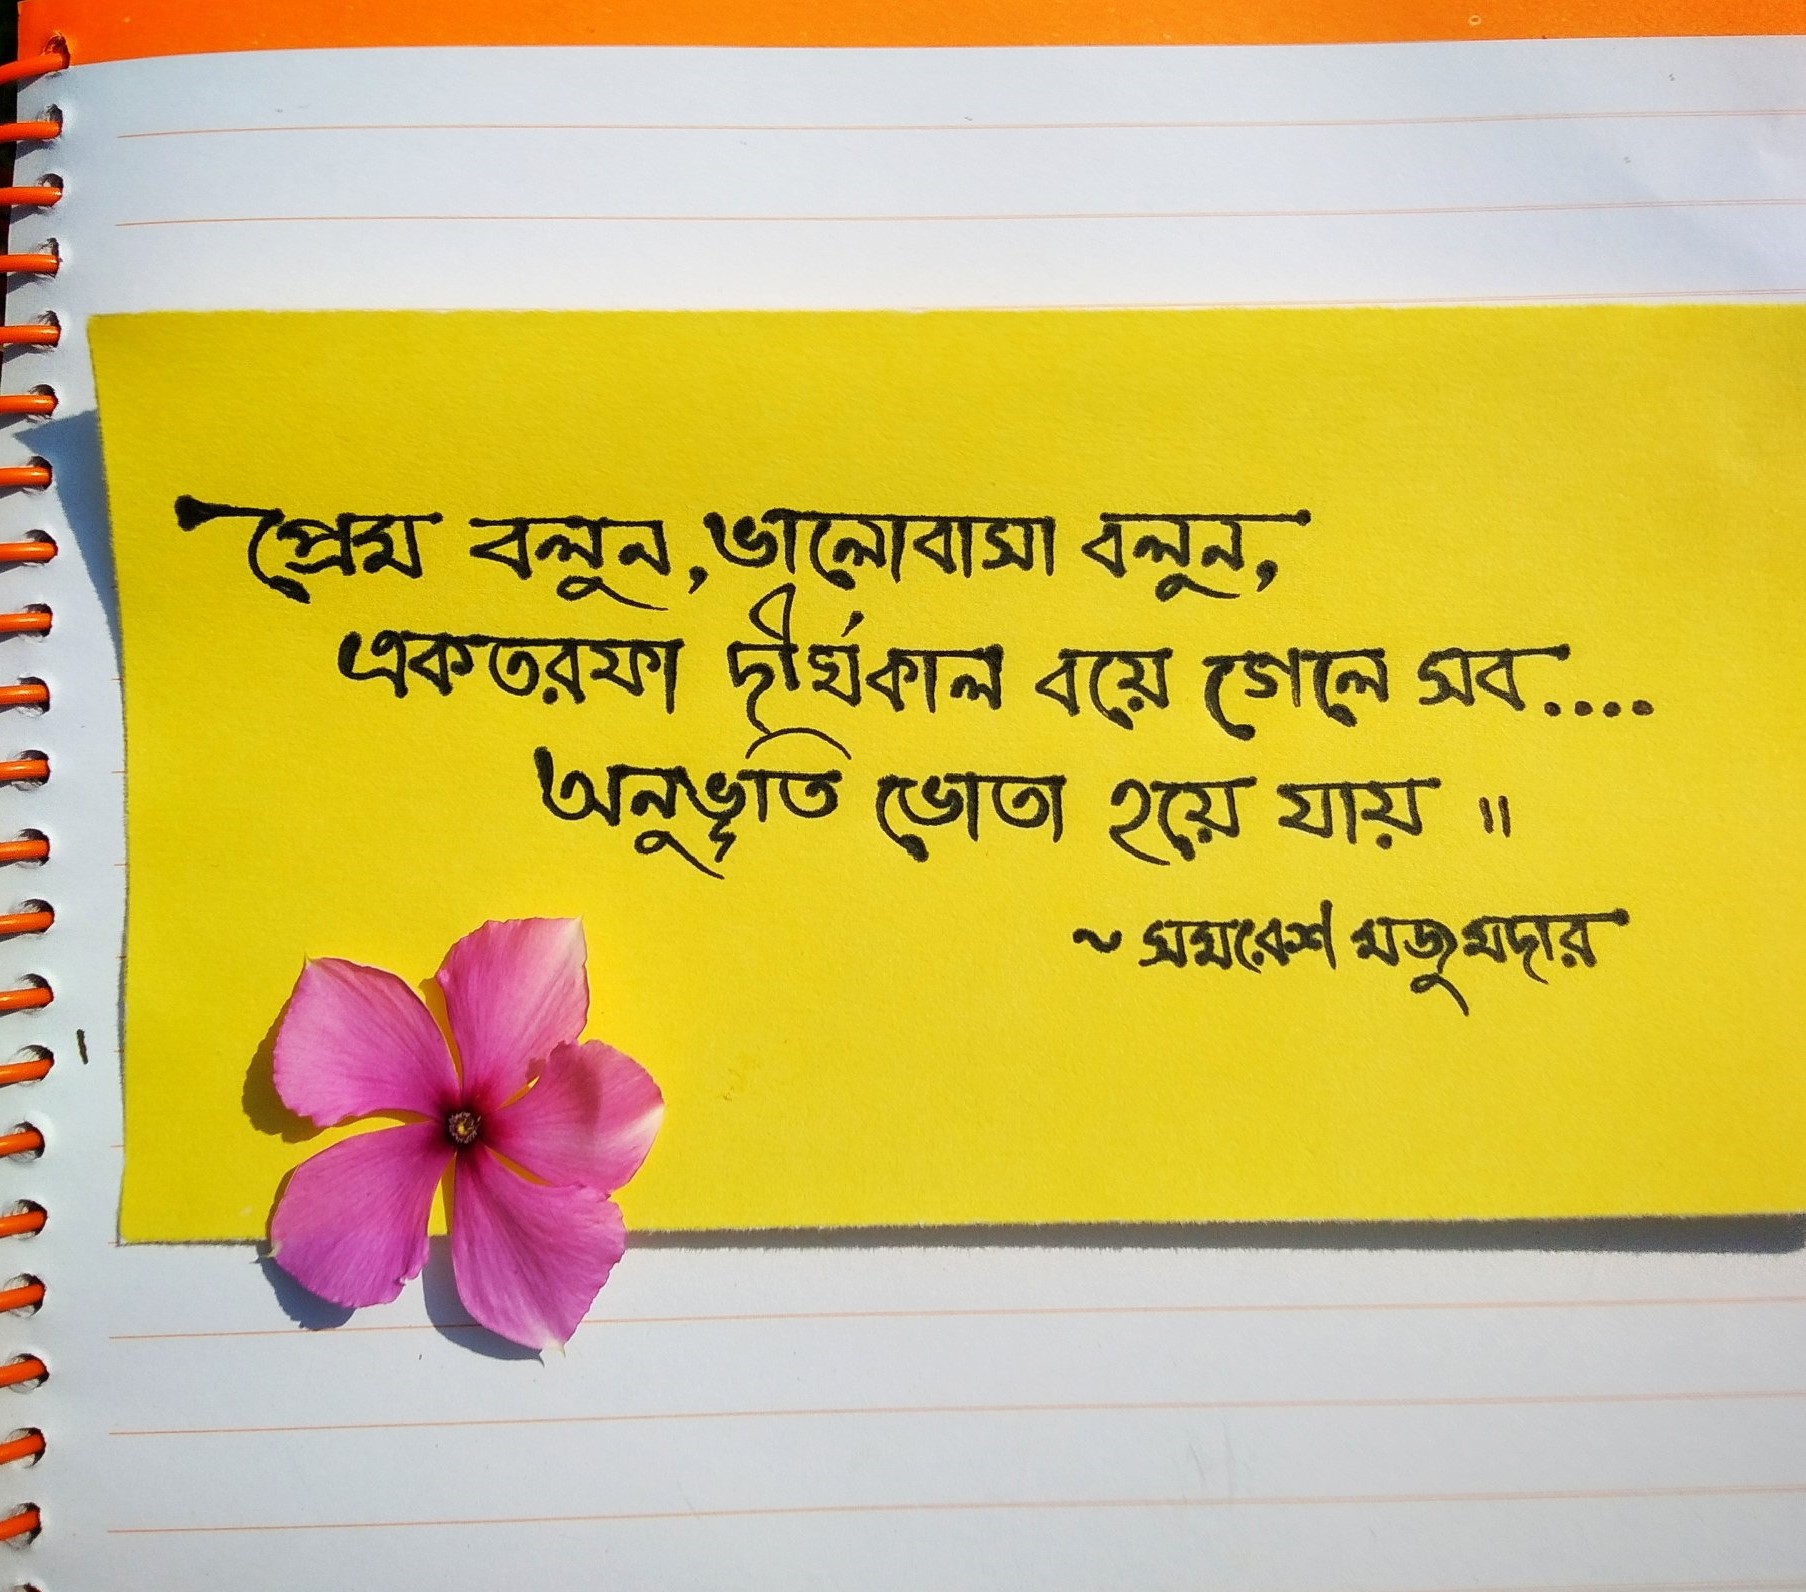 প্রেম বলুন, ভালোবাসা বলুন,
একতরফা দীর্ঘকাল বয়ে গেলে সব....
অনুভূতি ভোতা হয়ে যায় ॥
~ সমরেশ মজুমদার